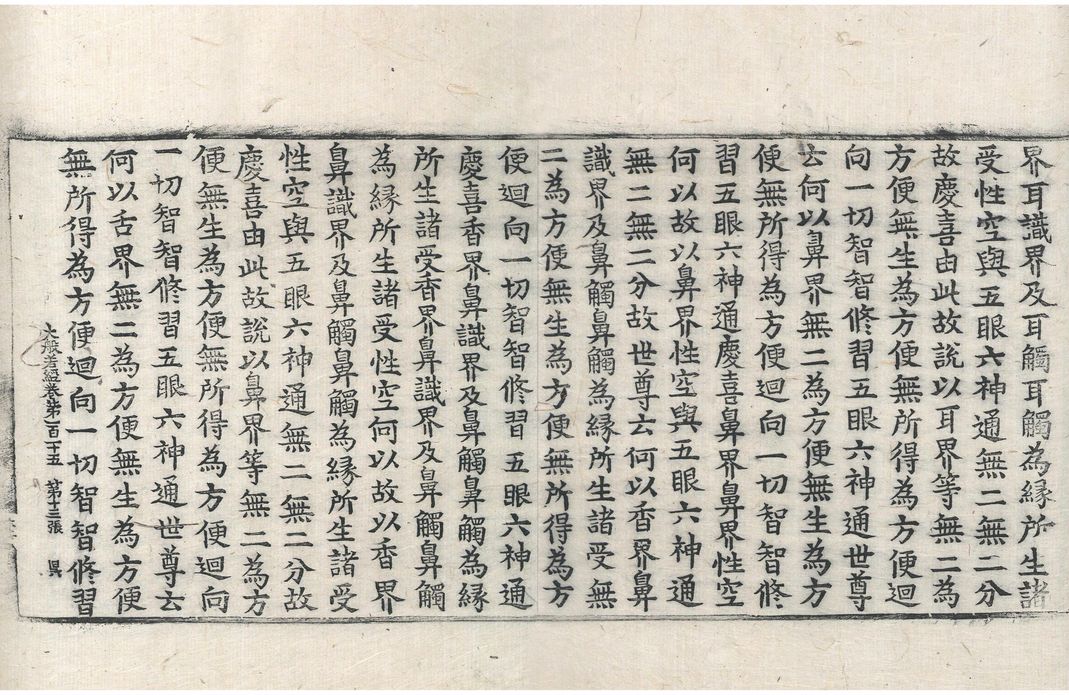 界耳識界及耳觸耳觸為緣所生諸
受性空與五眼六神通無二無二分
故慶喜由此故說以耳界等無二為
方便無生為方便無所得為方便迴
向一切智智修習五眼六神通世尊
云何以鼻界無二為方便無生為方
便無所得為方便迴向一切智智修
習五眼六神通慶喜鼻界鼻界性空
何以故以鼻界性空與五眼六神通
無二無二分故世尊云何以香界鼻
識界及鼻觸鼻觸為緣所生諸受無
二為方便無生為方便無所得為方
便迴向一切智智修習五眼六神通
慶喜香界鼻識界及鼻觸鼻觸為緣
所生諸受香界鼻識界及鼻觸鼻觸
為緣所生諸受性空何以故以香界
鼻識界及鼻觸鼻觸為緣所生諸受
性空與五眼六神通無二無二分故
慶喜由此故說以鼻界等無二為方
便無生為方便無所得為方便迴向
一切智智修習五眼六神通世尊云
何以舌界無二為方便無生為方便
無所得為方便迴向一切智智修習
大般若經卷第一百十五 第十三張